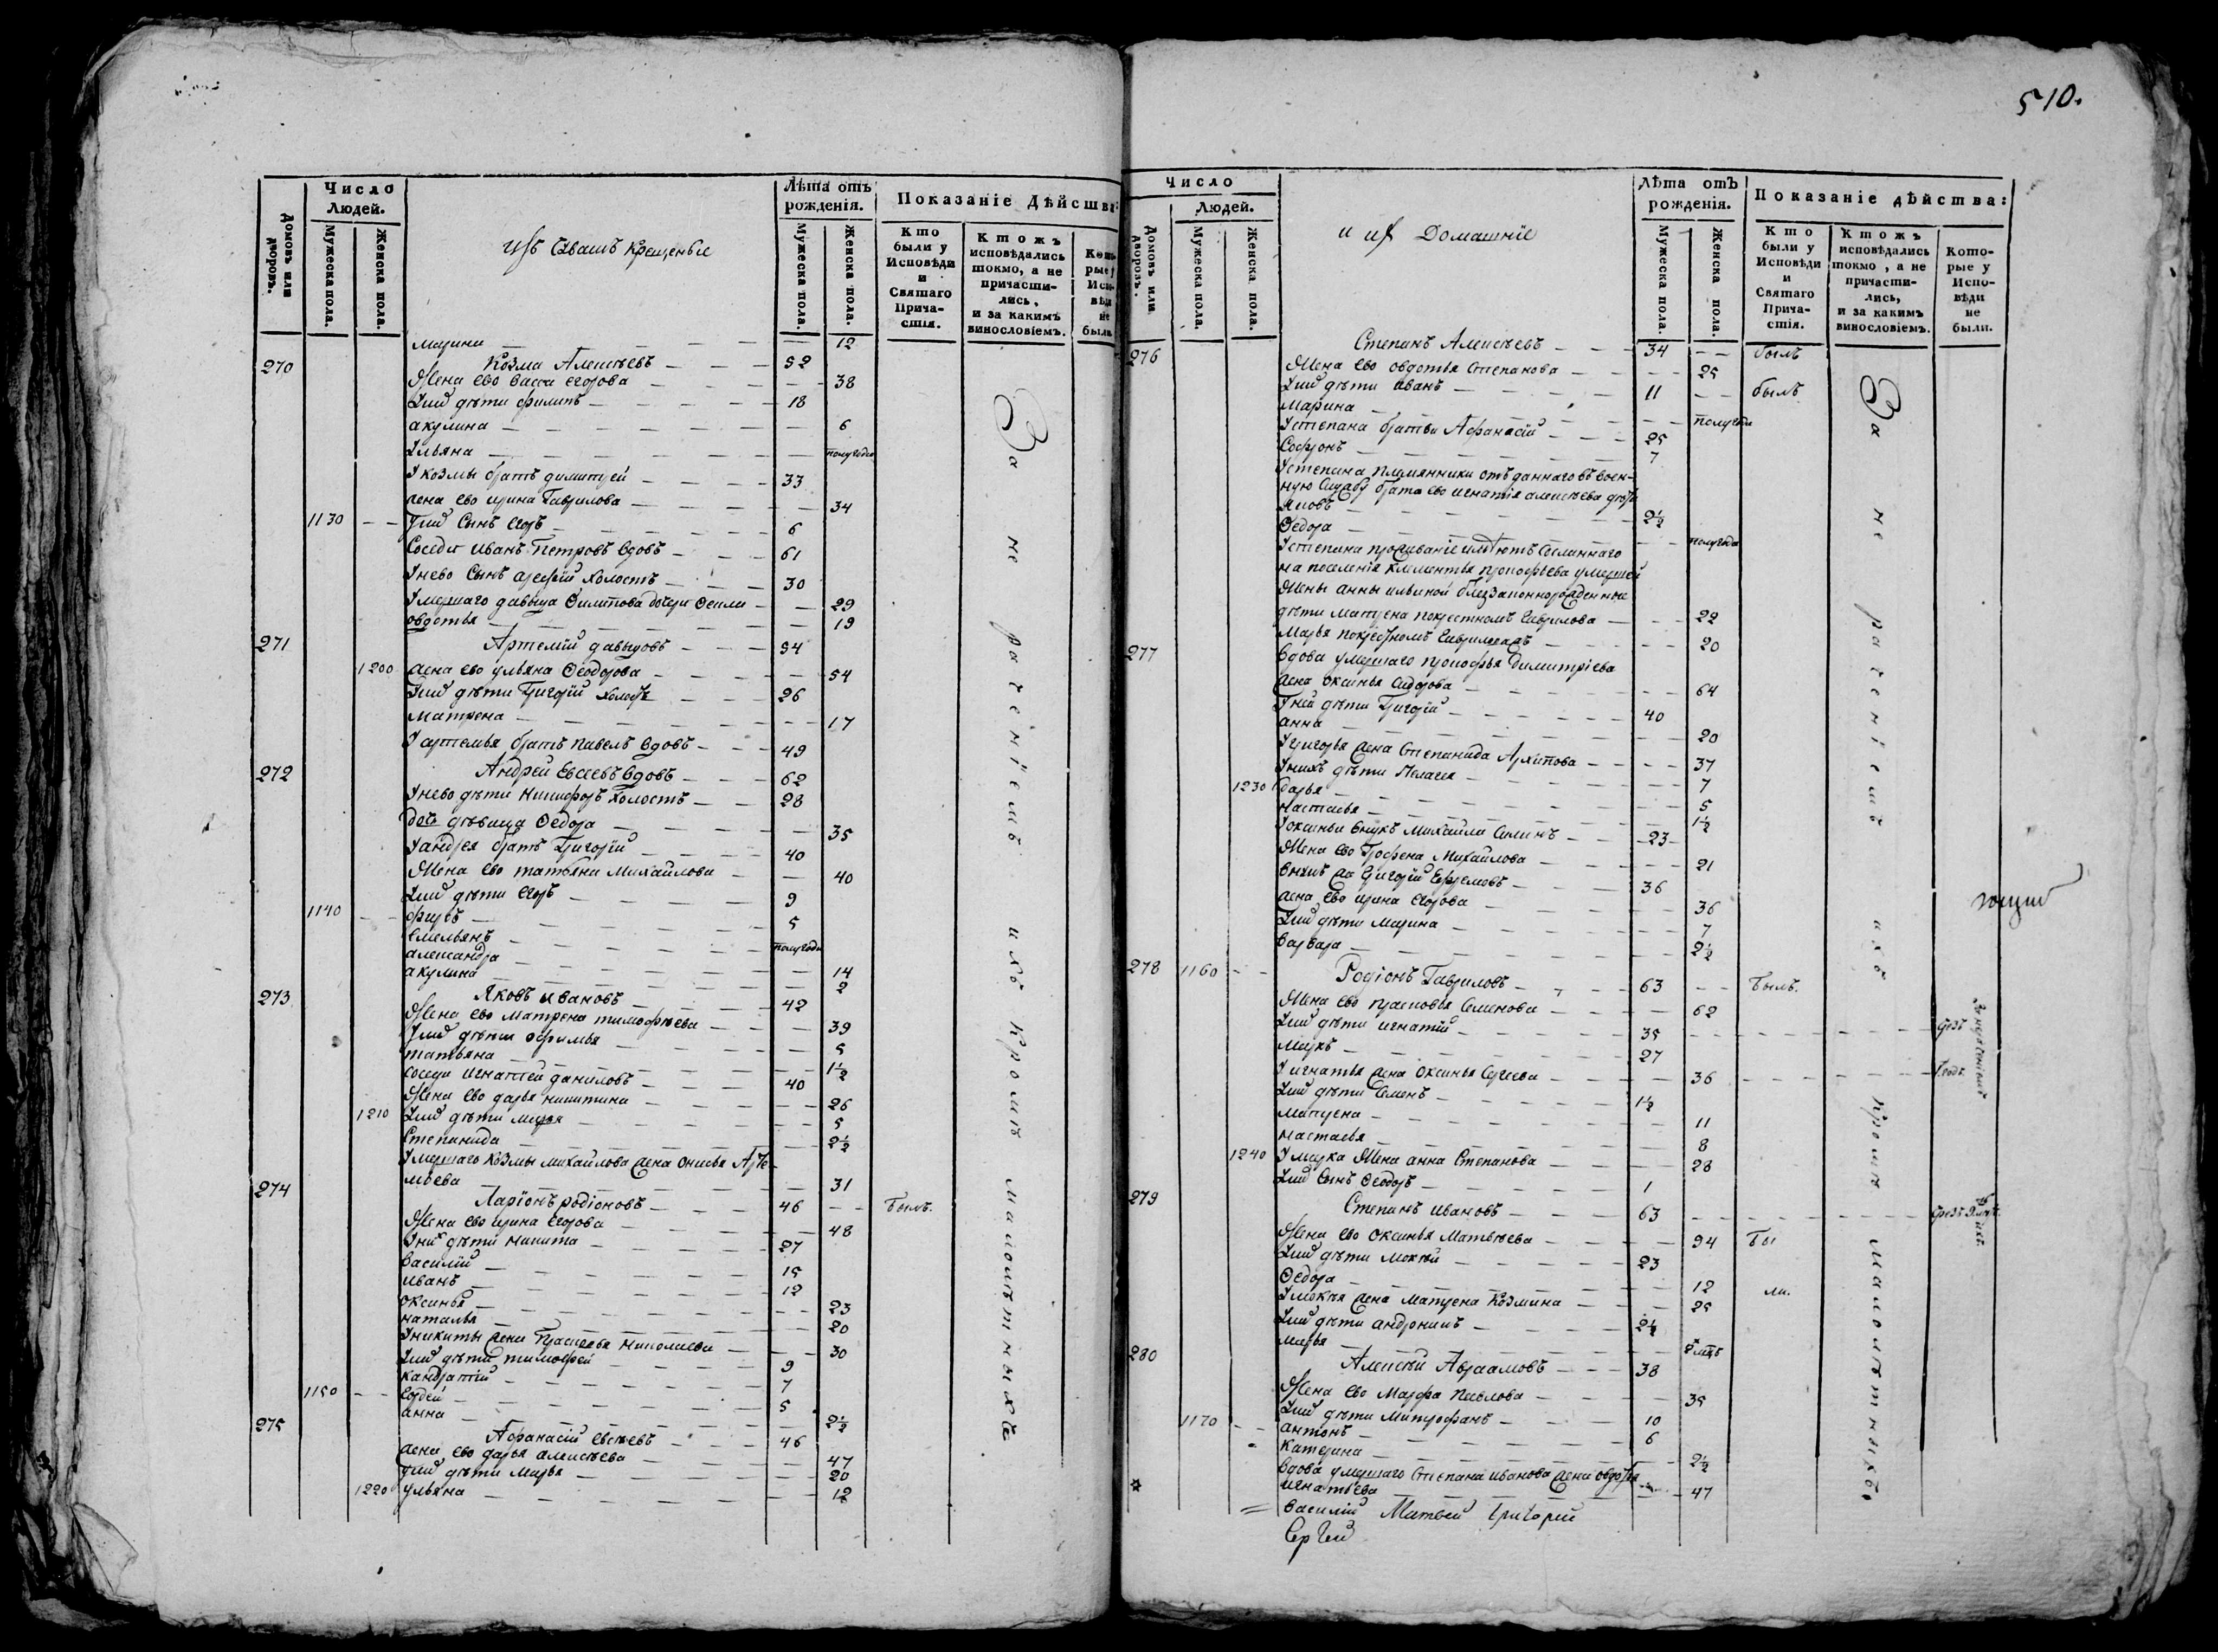 Число
Людей.
Домовъ или дворовъ.
Мужеска пола.
Женска пола.
изъ Чувашъ Крещеные
Лѣта отъ рожденія.
Мужеска пола.
Женска пола.
Показаніе Дѣйства:
Кто были у Исповѣди и Святаго Причастія.
Ктожъ исповѣдались токмо, а не причастились, и за какимъ винословіемъ.
Которые у Исповѣди не были.
Марина 12
270 Козма Алексѣевъ 52
Жена ево Васса Егорова 38
Ихъ дѣти Филипъ 18
акулина 6
Ульяна полугода
У козмы братъ димитрей 33
жена ево ирина Гаврилова 34
1130 Ихъ Сынъ Егоръ 6
Соседъ Иванъ Петровъ вдовъ 61
У нево Сынъ холостъ 30
Умершаго давыда Филипова дочери 29
овдотья 19
271 Артемій давыдовъ 54
1200 жена ево ульяна Ѳеодорова 54
Ихъ дѣти Григорій холостъ 26
матрена 17
У артемья братъ павелъ вдовъ 49
272 Андрей Евсеевъ вдовъ 62
У нево дѣти Никифоръ холостъ 28
дочь дѣвица Ѳедора 35
У андрея братъ Григорій 40
Жена ево татьяна Михайлова 40
Ихъ дѣти Егоръ 9
1140 фирсъ 5
Емельянъ полугода
александра 14
акулина 2
273 Яковъ Ивановъ 42
Жена ево матрена тимофѣева 39
Ихъ дѣти 5
татьяна 1½
соседи игнатей даниловъ 40
Жена ево дарья никитина 26
1210 Ихъ дѣти Марья 5
Степанида 2½
Умершаго козмы михайлова жена Онисья Арте-
мьева 31
274 Ларіонъ родіоновъ 46 былъ.
Жена ево ирина Егорова 48
У нихъ дѣти никита 27
Василій 15
иванъ 12
оксинья 23
наталья 20
У никиты жена Прасковья николаева 30
Ихъ дѣти тимофей 9
кандратій 7
1150 5
анна 2½
275 Афанасій Евсѣевъ 46
жена ево дарья алексѣева 47
Ихъ дѣти Марья 20
1220 ульяна 12
За не раченіемъ ихъ Кромѣ малолѣтныхъ
510.
Число
Людей.
Домовъ или дворовъ.
Мужеска пола.
Женска пола.
и ихъ Домашніе
Лѣта отъ рожденія.
Мужеска пола.
Женска пола.
Показаніе дѣйства:
Кто были у Исповѣди и Святаго Причастія.
Ктожъ исповѣдались токмо, а не причастились, и за какимъ винословіемъ.
Которые у Исповѣди не были.
276 Степанъ Алексѣевъ 34 былъ
Жена ево овдотья Степанова 25
Ихъ дѣти иванъ 11 былъ
Марина полугода
У степана братьи Афанасій 25
Софронъ 7
У степана племянники отъ даннаго въ воен-
ную Службу брата ево игнатія алексѣева дѣти
Яковъ 2½
Ѳедора полугода
У степана проживаніе имѣютъ Сосланнаго
на поселеніе Клементья прокофьева умершей
Жены анны ильиной блезаконнорожденные
дѣти матрена по крестномъ Гаврилова 22
Марья по крестномъ Гаврилова 20
277 Вдова умершаго прокофья Димитріева
жена оксинья Сидорова 64
У ней дѣти Григорій 40
анна 20
У григорья жена Степанида Архипова 37
У нихъ дѣти Пелагея 7
1230 дарья 5
настасья 1½
У оксиньи внукъ Михайла 23
Жена ево Михайлова 21
Григорій Ефремовъ 36
жена ево ирина Егорова 36
Ихъ дѣти Марина 7
варвара 2½
278 1160 Родіонъ Гавриловъ 63 былъ.
Жена ево прасковья Семенова 62
Ихъ дѣти игнатій 35
Маркъ 27
У игнатья жена оксинья Сергеева 36
Ихъ дѣти Семенъ 1½
матрена 11
настасья 8
1240 У марка Жена анна Степанова 28
Ихъ Сынъ Ѳеодоръ 1
279 Степанъ Ивановъ 63
Жена ево Оксинья Матвѣева 54 бы
Ихъ дѣти Мокѣй 23
Ѳедора 12 ли.
У мокѣя жена матрена Козмина 25
Ихъ дѣти андроникъ 2½
Марья
280 Алексѣй Авраамовъ 38
Жена ево Марфа Павлова 35
Ихъ дѣти Митрофанъ 10
1170 антонъ 6
Катерина 2½
Вдова умершаго Степана иванова жена овдотья
игнатьева 47
Василій Матвей Григорій
Сергѣй
За не раченіемъ ихъ Кромѣ малолѣтныхъ.